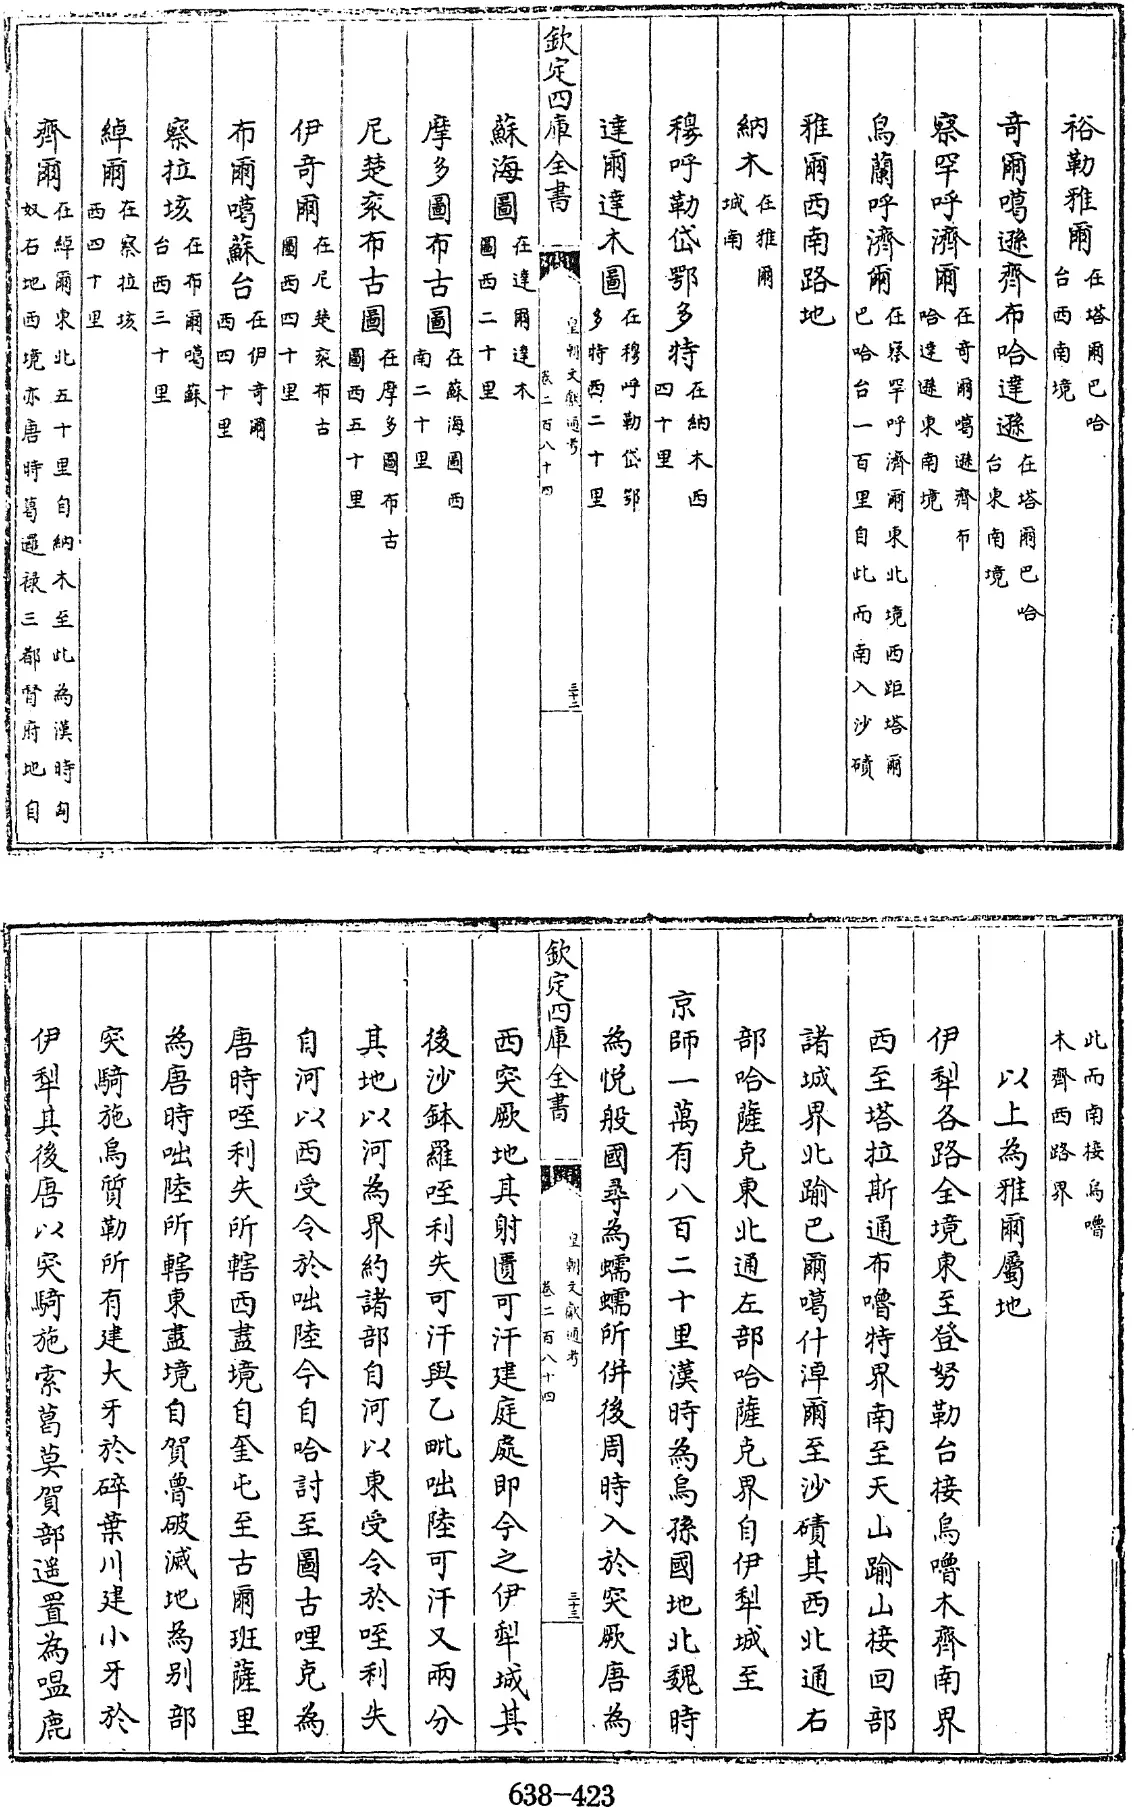 裕勒雅爾在塔爾巴哈台西南境
奇爾噶遜齊布哈達遜在塔爾巴哈台東南境
察罕呼濟爾在奇爾噶遜齊布哈達遜東南境
烏蘭呼濟爾在察罕呼濟爾東北境西距塔爾巴哈台一百里自此而南入沙磧
雅爾西南路地
納木在雅爾城南
穆呼勒岱鄂多特在納木西四十里
達爾達木圖在穆呼勒岱鄂多特西二十里
欽定四庫全書
皇朝文獻通考
卷二百八十四
三十二
蘇海圖在達爾達木圖西二十里
摩多圖布古圖在蘇海圖西南二十里
尼楚衮布古圖在摩多圖布古圖西五十里
伊奇爾在尼楚衮布古圖西四十里
布爾噶蘇台在伊奇爾西四十里
察拉垓在布爾噶蘇台西三十里
綽爾在察拉垓西四十里
齊爾在綽爾東北五十里自納木至此為漢時匈奴右地西境亦唐時葛邏祿三都督府地自
此而南接烏嚕木齊西路界
以上為雅爾屬地
伊犁各路全境東至登努勒台接烏嚕木齊南界
西至塔拉斯通布嚕特界南至天山踰山接回部
諸城界北踰巴爾噶什淖爾至沙磧其西北通右
部哈薩克東北通左部哈薩克界自伊犁城至
京師一萬有八百二十里漢時為烏孫國地北魏時
為悅般國尋為蠕蠕所併後周時入於突厥唐為
欽定四庫全書
皇朝文獻通考
卷二百八十四
三十三
西突厥地其射匱可汗建庭處即今之伊犁城其
後沙鉢羅咥利失可汗與乙毗咄陸可汗又兩分
其地以河為界約諸部自河以東受令於咥利失
自河以西受令於咄陸今自哈討至圖古哩克為
唐時咥利失所轄西盡境自奎屯至古爾班薩里
為唐時咄陸所轄東盡境自賀魯破滅地為別部
突騎施烏質勒所有建大牙於碎葉川建小牙於
伊犁其後唐以突騎施索葛莫賀部遥置為嗢鹿
638-423